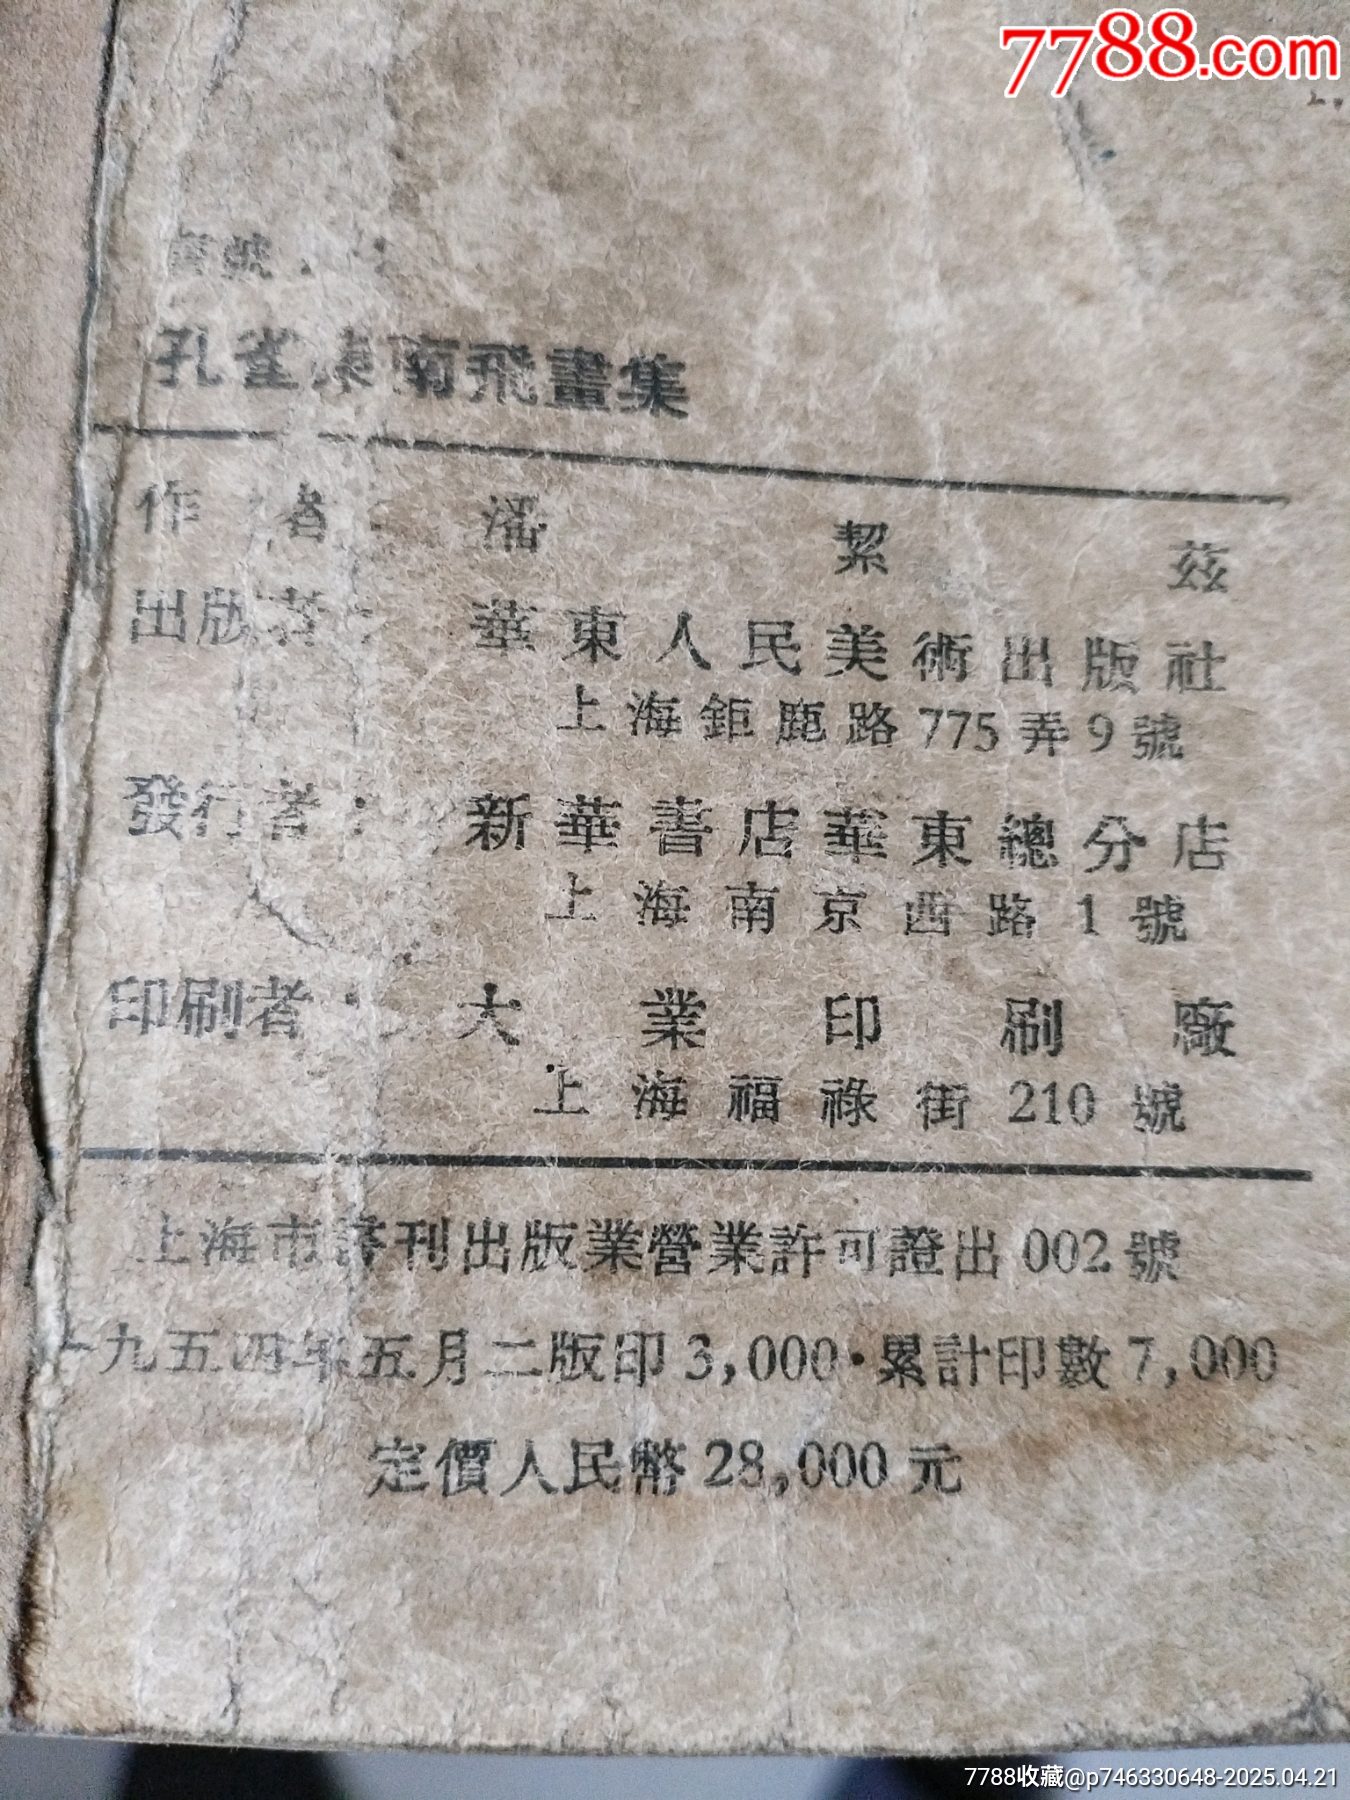 7788.com
號
孔雀東南飛畫集
作者 潘絜茲
出版者： 華東人民美術出版社
上海鉅鹿路775弄9號
發行者： 新華書店華東總分店
上海南京西路1號
印刷者： 大業印刷廠
上海福祿街210號
上海市書刊出版業營業許可證出002號
一九五四年五月二版印3,000·累計印數7,000
定價人民幣28,000元
7788收藏@p746330648-2025.04.21